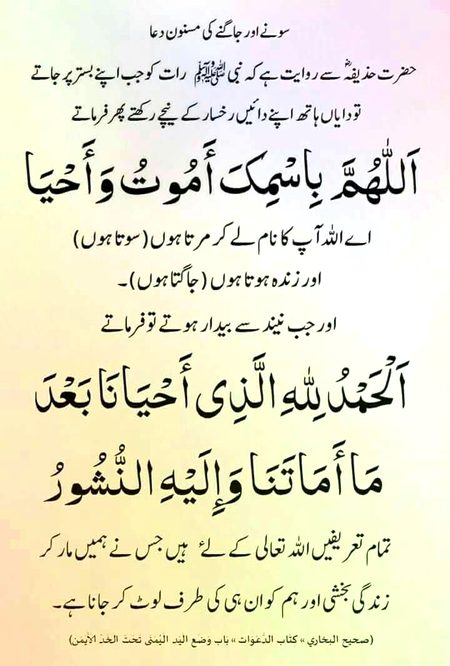 سونے اور جاگنے کی مسنون دعا
حضرت حذیفہؓ سے روایت ہے کہ نبی ﷺ رات کو جب اپنے بستر پر جاتے
تو دایاں ہاتھ اپنے دائیں رخسار کے نیچے رکھتے پھر فرماتے
اَللّٰهُمَّ بِاسْمِكَ أَمُوتُ وَأَحْيَا
اے اللہ آپ کا نام لے کر مرتا ہوں (سوتا ہوں)
اور زندہ ہوتا ہوں (جاگتا ہوں)۔
اور جب نیند سے بیدار ہوتے تو فرماتے
اَلْحَمْدُ لِلّٰهِ الَّذِی أَحْيَانَا بَعْدَ
مَا أَمَاتَنَا وَإِلَيْهِ النُّشُورُ
تمام تعریفیں اللہ تعالی کے لئے ہیں جس نے ہمیں مار کر
زندگی بخشی اور ہم کو ان ہی کی طرف لوٹ کر جانا ہے۔
(صحيح البخاري » كتاب الدَّعَوَات » بَاب وَضْع اليَدِ اليُمْنى تَحْتَ الخَدِّ الأَيْمَنِ)